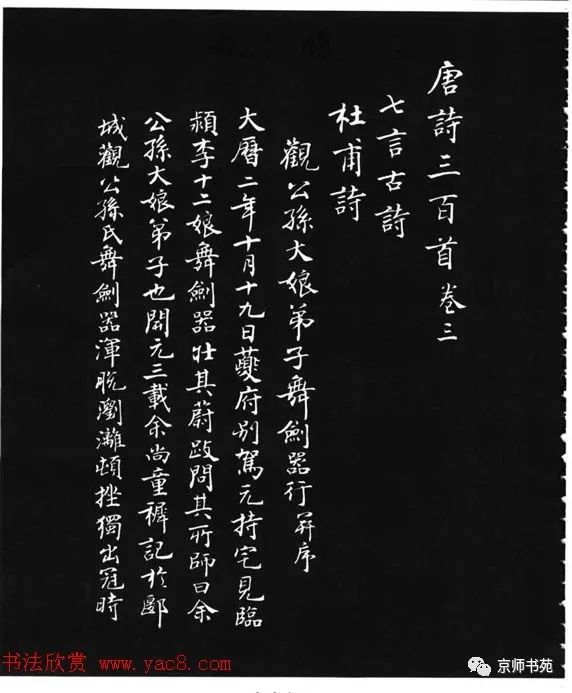 唐詩三百首卷三
七言古詩
杜甫詩
觀公孫大娘弟子舞劍器行并序
大曆二年十月十九日夔府別駕元持宅見臨
潁李十二娘舞劍器壯其蔚跂問其所師曰余
公孫大娘弟子也開元三載余尚童穉記於郾
城觀公孫氏舞劍器渾脫瀏灕頓挫獨出冠時
书法欣赏 www.yac8.com
京师书苑